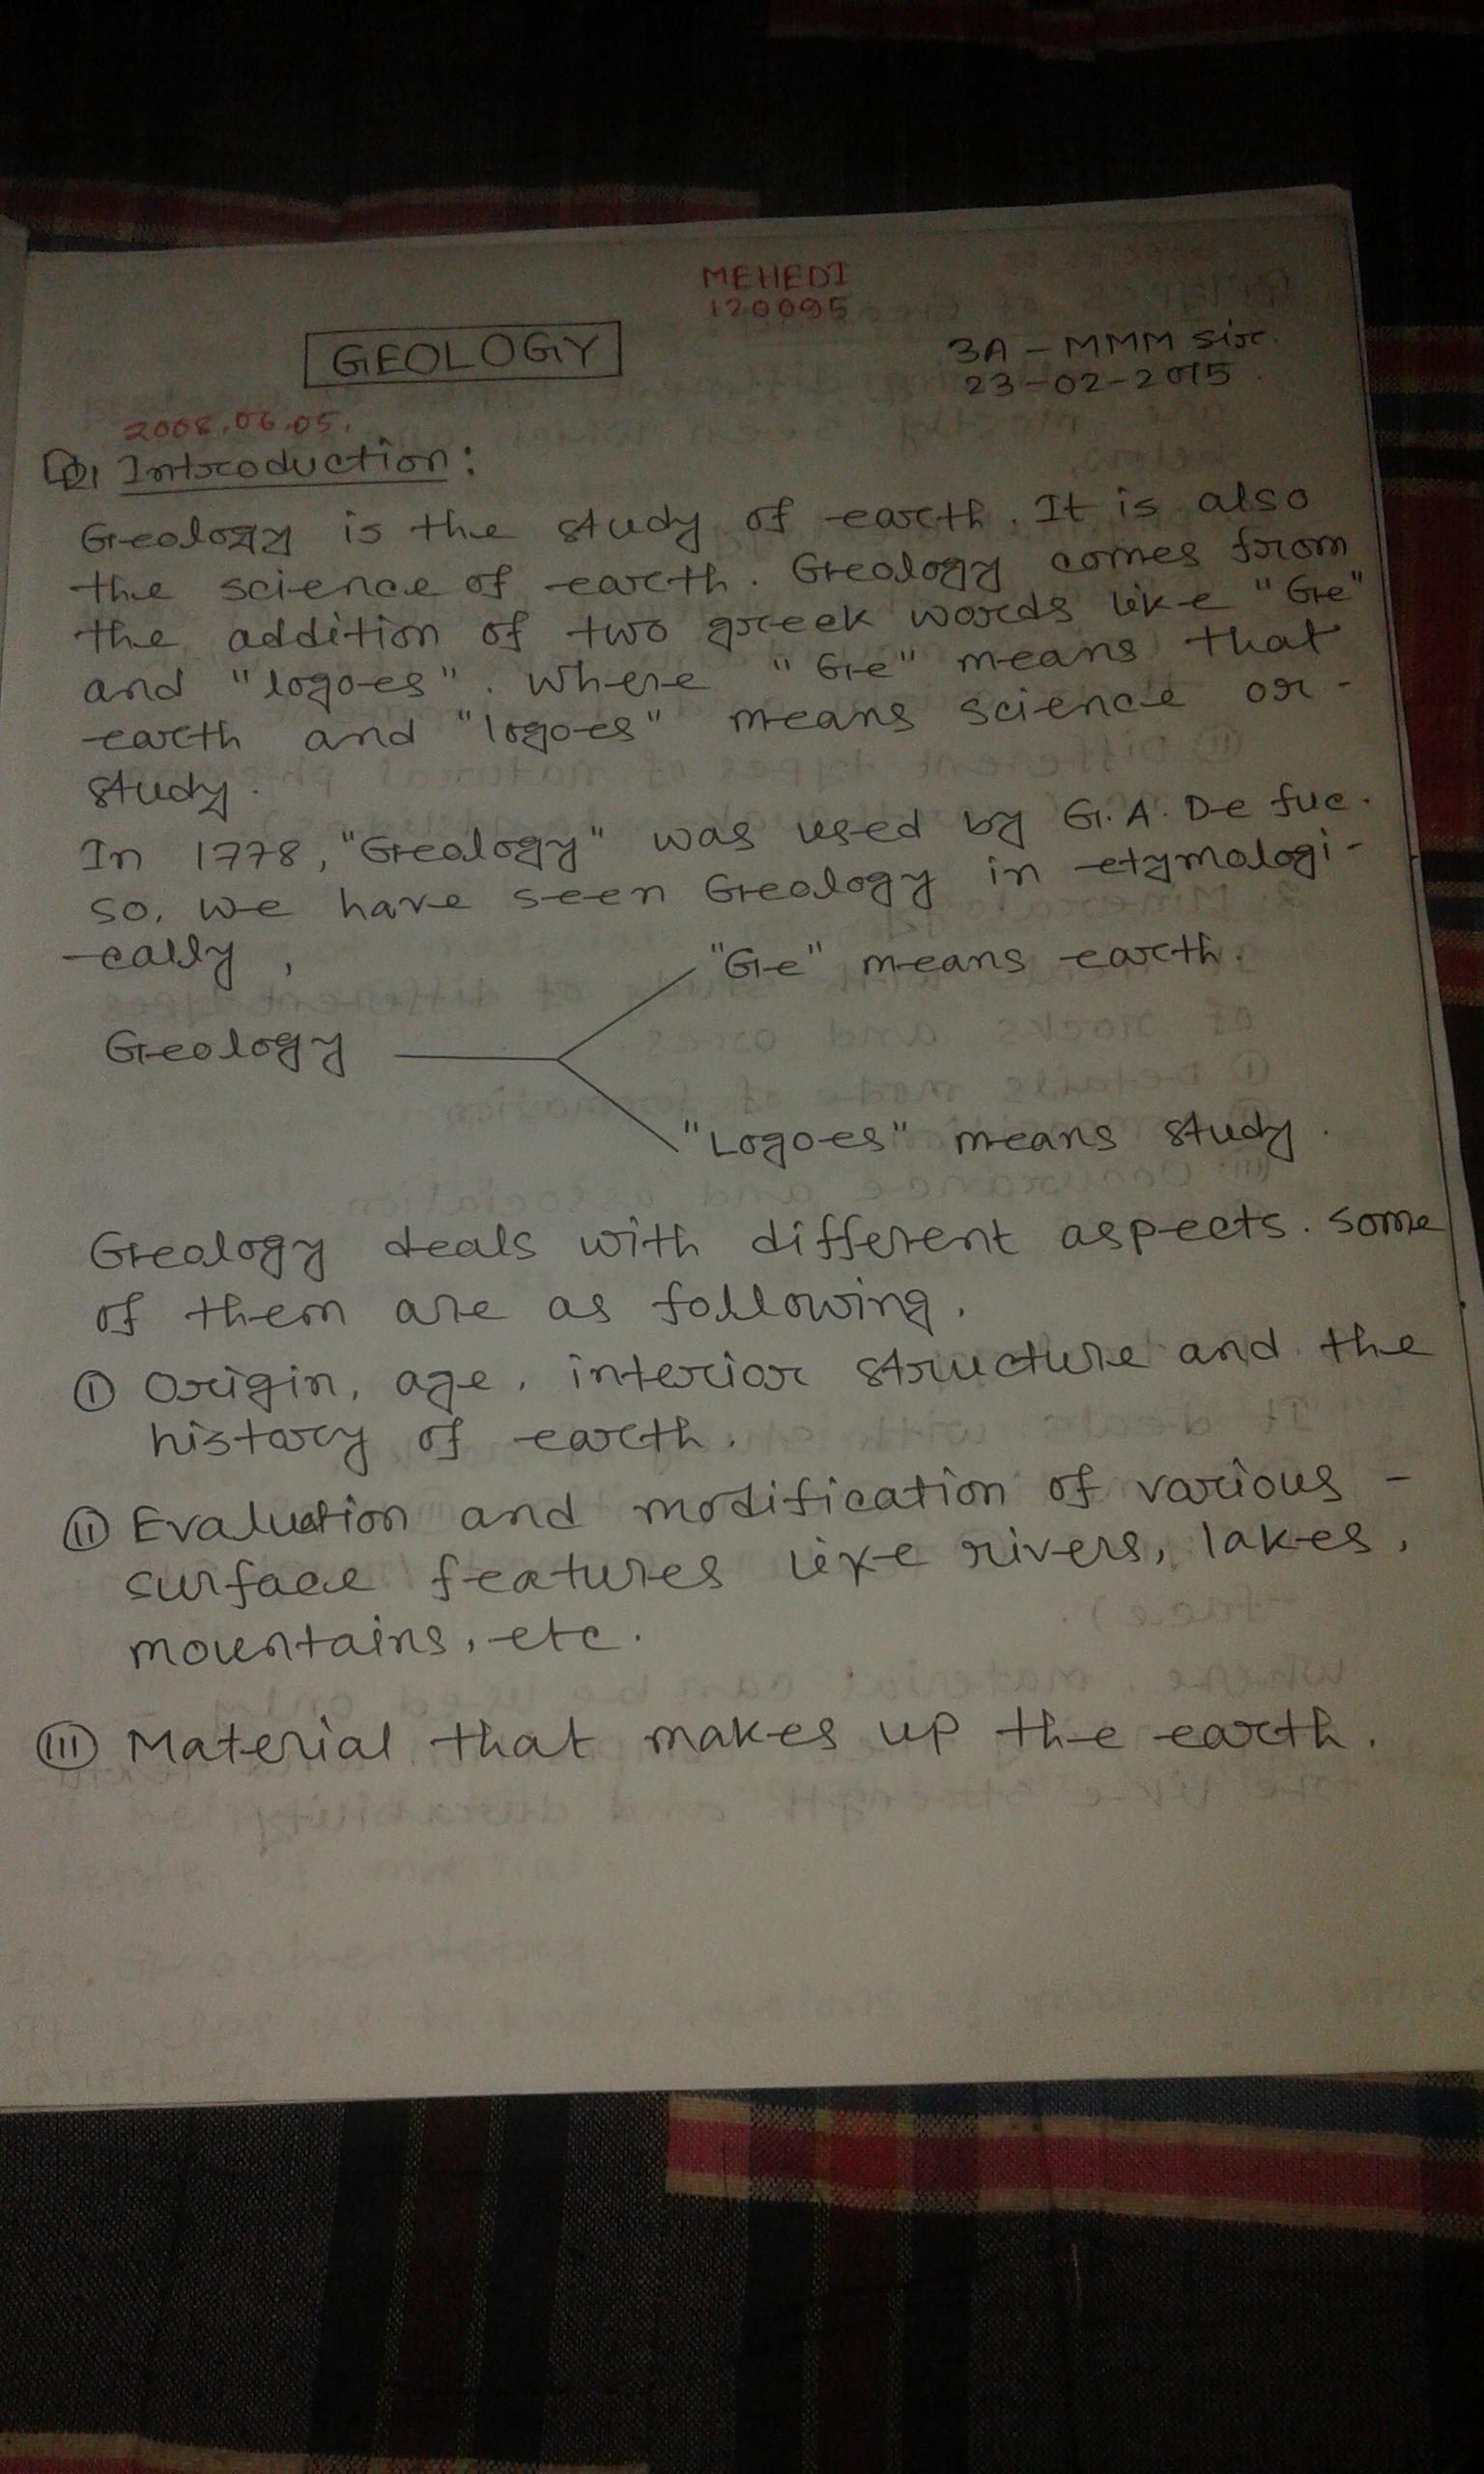 MEHEDI
120095
GEOLOGY
3A - MMM Sir.
23-02-2015.
2008.06.05.
Introduction:
Geology is the study of earth. It is also
the science of earth. Geology comes from
the addition of two greek words like "Ge"
and "logoes". Where "Ge" means that
earth and "logoes" means science or -
study.
In 1778, "Geology" was used by G.A. De fuc.
So, we have seen Geology in etymologi-
-cally,
"Ge" means earth.
Geology
"Logoes" means study.
Geology deals with different aspects. Some
of them are as following.
(i) Origin, age, interior structure and the
history of earth.
(ii) Evaluation and modification of various -
surface features like rivers, lakes,
mountains, etc.
(iii) Material that makes up the earth.